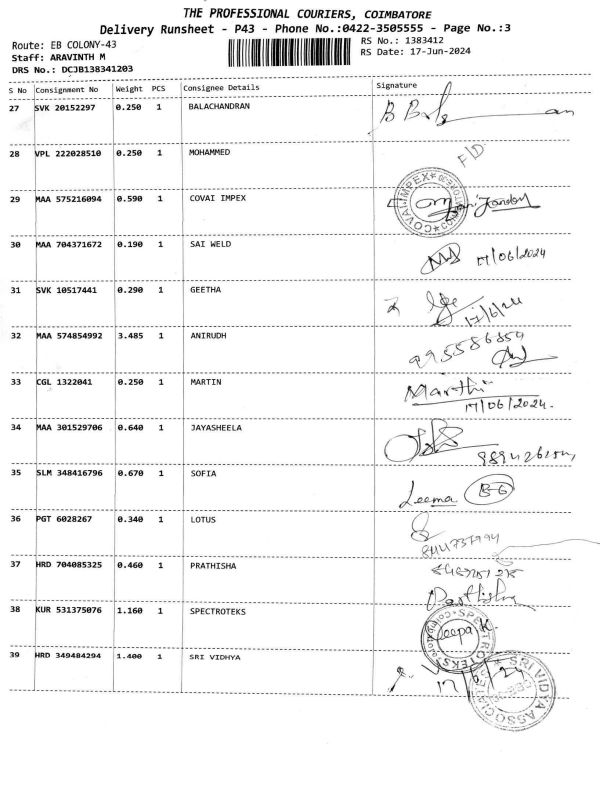 THE PROFESSIONAL COURIERS, COIMBATORE
Delivery Runsheet - P43 - Phone No.:0422-3505555 - Page No.:3
Route: EB COLONY-43
RS No.: 1383412
Staff: ARAVINTH M
RS Date: 17-Jun-2024
DRS No.: DCJB138341203
S No Consignment No Weight PCS Consignee Details Signature
27 SVK 20152297 0.250 1 BALACHANDRAN
28 VPL 222028510 0.250 1 MOHAMMED
29 MAA 575216094 0.590 1 COVAI IMPEX
COVAI IMPEX
30 MAA 704371672 0.190 1 SAI WELD 17/06/2024
31 SVK 10517441 0.290 1 GEETHA
17/6/24
32 MAA 574854992 3.485 1 ANIRUDH
33 CGL 1322041 0.250 1 MARTIN
17/06/2024.
34 MAA 301529706 0.640 1 JAYASHEELA
35 SLM 348416796 0.670 1 SOFIA
Leema B-6
36 PGT 6028267 0.340 1 LOTUS
37 HRD 704085325 0.460 1 PRATHISHA
38 KUR 531375076 1.160 1 SPECTROTEKS
Deepa K.
SPECTROTEKS
39 HRD 349484294 1.400 1 SRI VIDHYA
17/6/24
SRI VIDYA ASSOCIATES